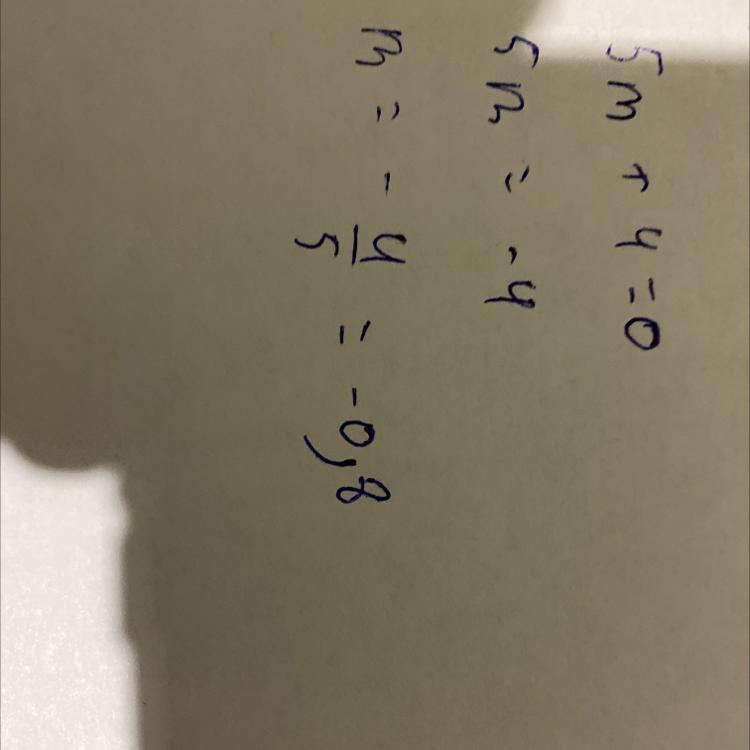 5m + 4 = 0
5m = -4
m = - 4/5 = -0,8